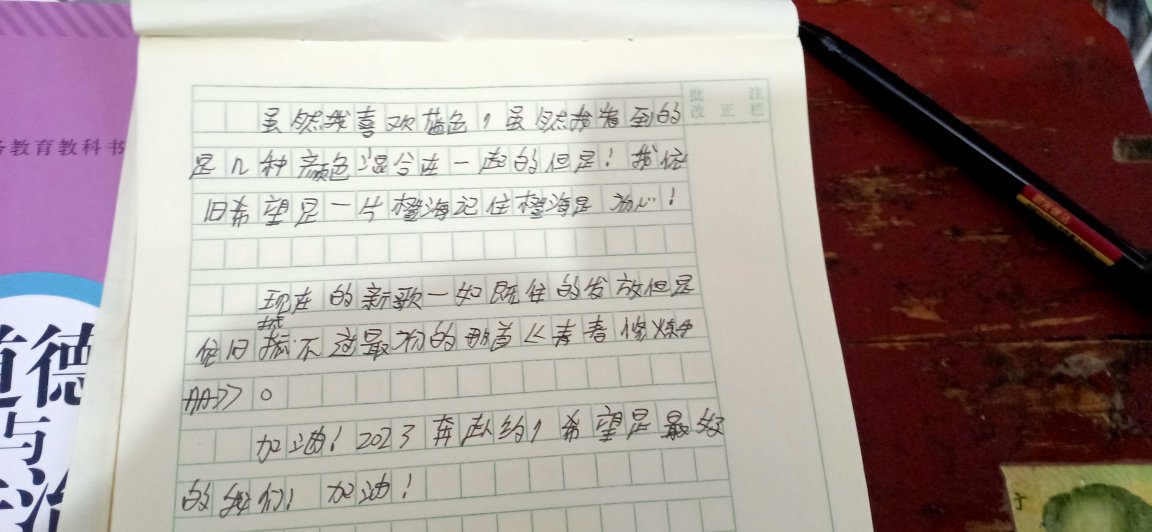 务教育教科书
道德
与
治
批 注
改正栏
虽然我喜欢蓝色,虽然我看到的
是几种颜色混合在一起的但是!我依
旧希望是一片橙海记住橙海是初心!
现在的新歌一如既往的发放但是
依旧抵不过最初的那首《青春修炼手
册》。
加油!2023奔赴约,希望是最好
的我们!加油!